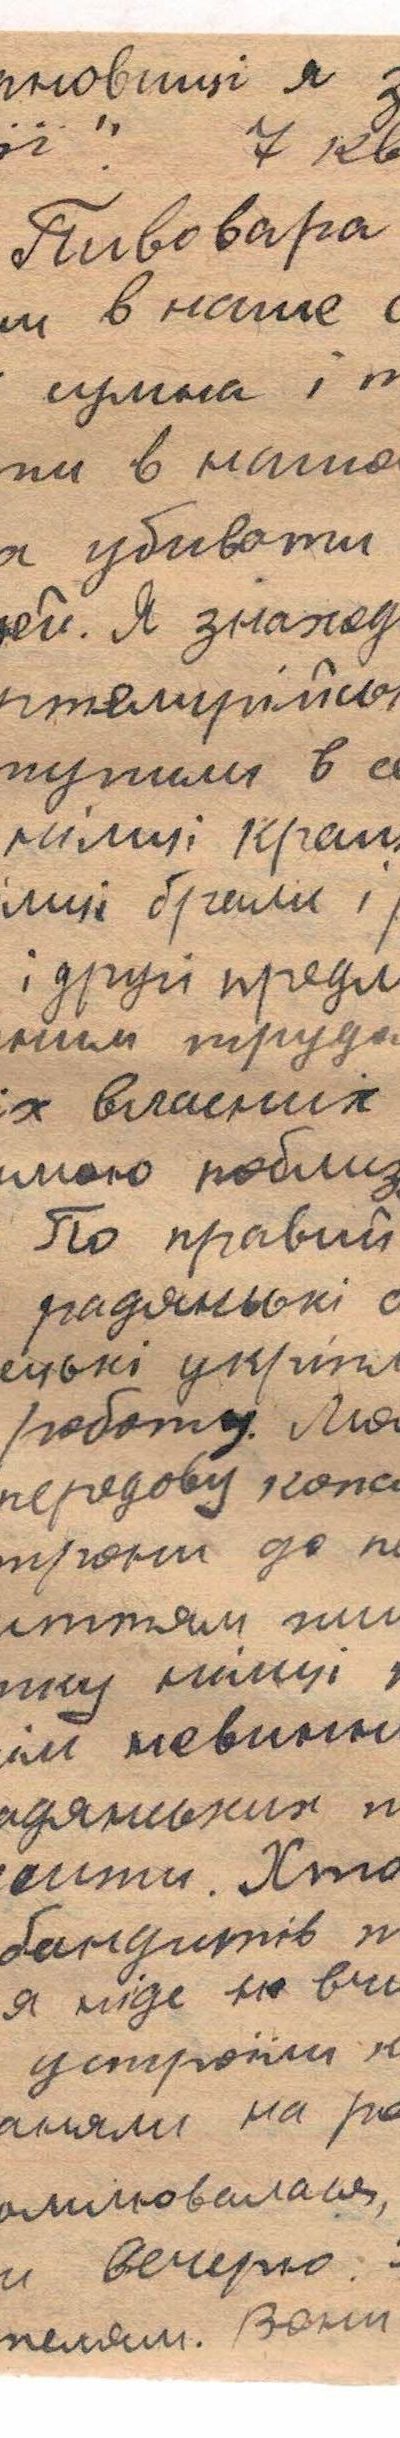 рновиці я з
ії". 7 кв
Пивовара
ли в наше с
сумна і т
ти в нашо
а убивати
ей. Я знаход
ртемирійсь
тупили в се
німці крани
імці брали і р
і другі предм
ним трудо
їх власних
имою поблиз
По правий
радянські с
ецькі укріпл
роботу. Мол
передову копа
трони до пе
иттям ми
тку німці н
їм невинни
адянських п
сити. Хто
бандитів т
я ніде не вчи
устроїли к
аняли на ро
омилювалася,
и вечерю.
телям. Вони